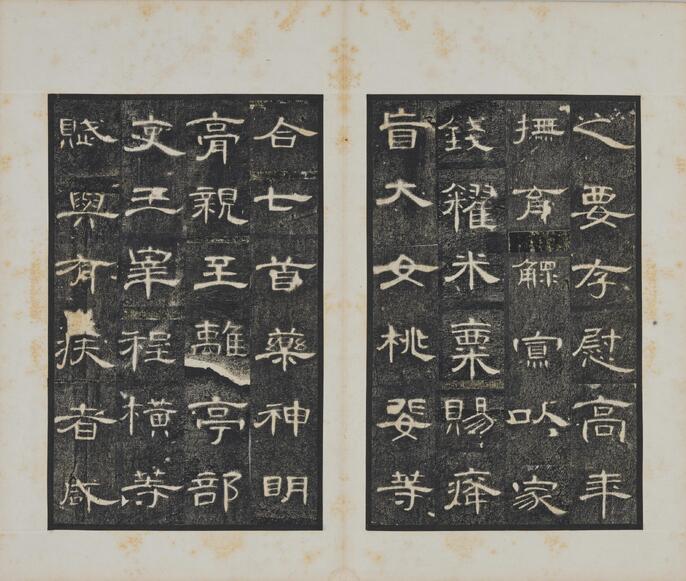 之要存慰高年
撫育鰥寡以家
錢糴米粟賜癃
盲大女桃婓等
合七首藥神明
膏親至離亭部
吏王宰程橫等
賦與有疾者咸